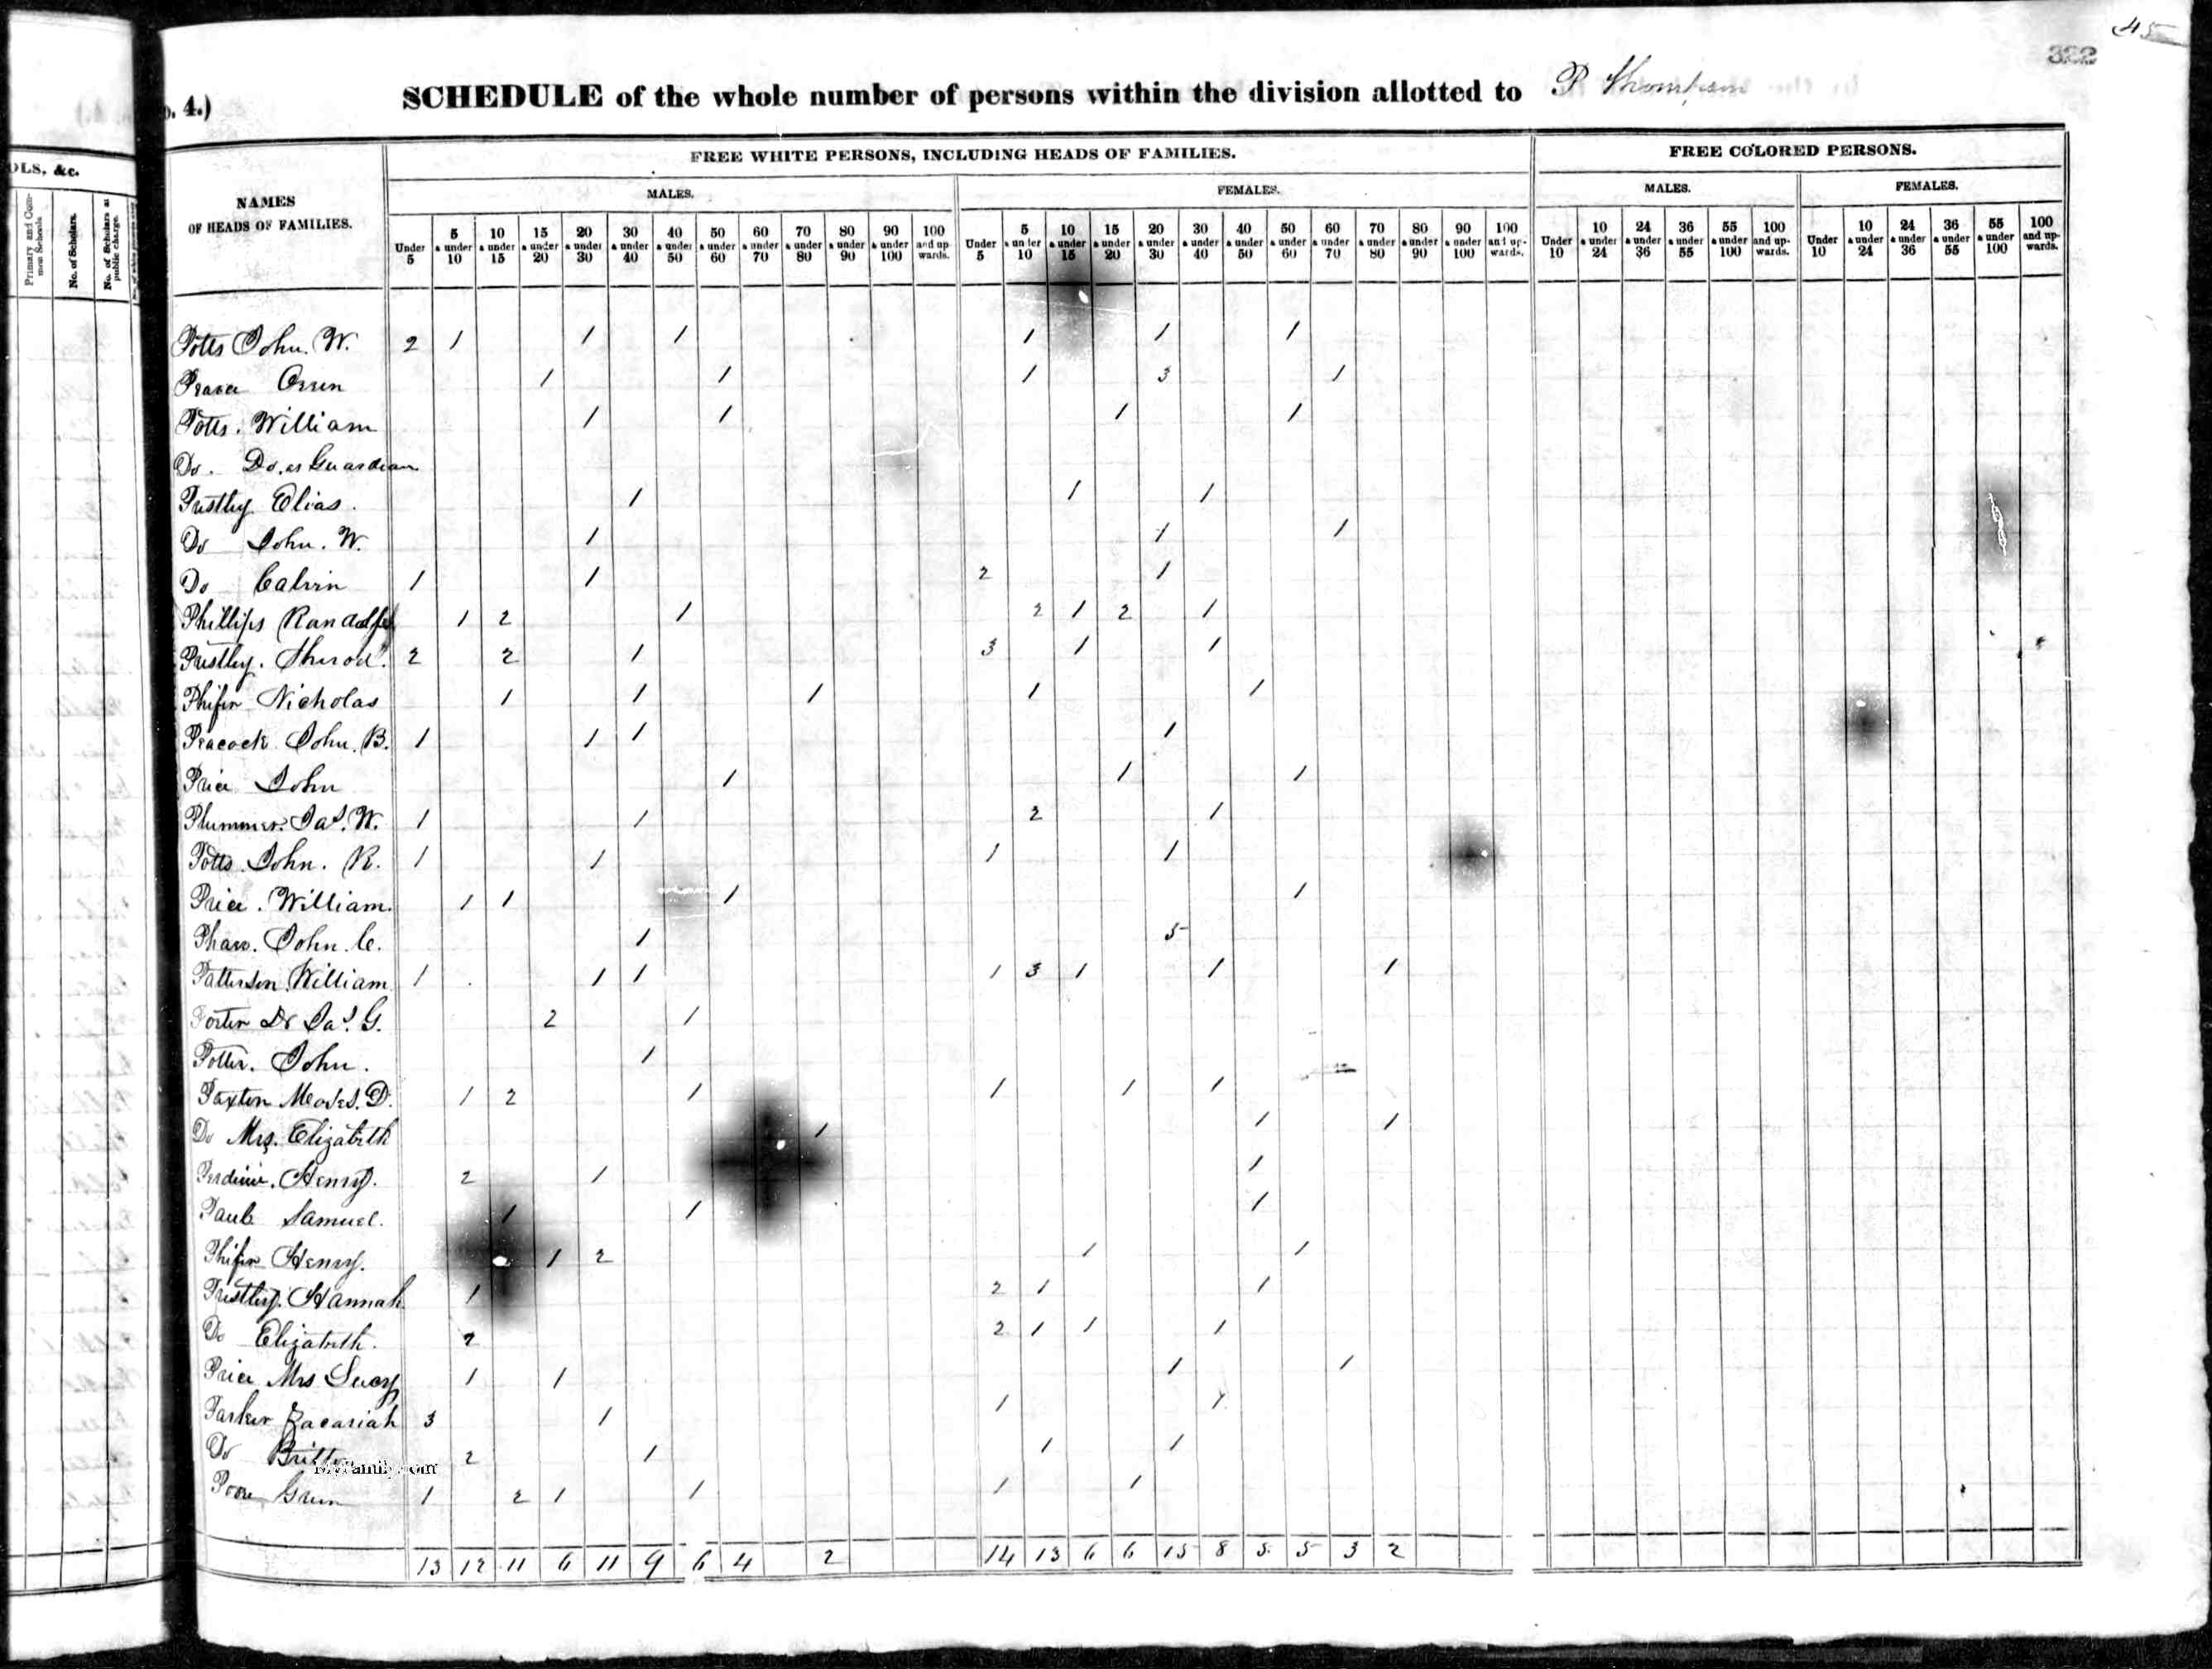 45
322
o. 4.)
SCHEDULE of the whole number of persons within the division allotted to P Thompson
OLS, &c.
Primary and Common Schools.
No. of Scholars.
No. of Scholars at public charge.
FREE WHITE PERSONS, INCLUDING HEADS OF FAMILIES.
FREE COLORED PERSONS.
NAMES OF HEADS OF FAMILIES.
MALES.
FEMALES.
MALES.
FEMALES.
Under 5 | 5 & under 10 | 10 & under 15 | 15 & under 20 | 20 & under 30 | 30 & under 40 | 40 & under 50 | 50 & under 60 | 60 & under 70 | 70 & under 80 | 80 & under 90 | 90 & under 100 | 100 and upwards. | Under 5 | 5 & under 10 | 10 & under 15 | 15 & under 20 | 20 & under 30 | 30 & under 40 | 40 & under 50 | 50 & under 60 | 60 & under 70 | 70 & under 80 | 80 & under 90 | 90 & under 100 | 100 and upwards. | Under 10 | 10 & under 24 | 24 & under 36 | 36 & under 55 | 55 & under 100 | 100 and upwards. | Under 10 | 10 & under 24 | 24 & under 36 | 36 & under 55 | 55 & under 100 | 100 and upwards.
Potts John. W. 2 1 1 1 1 1 1
Orren 1 1 1 3 1
Potts. William 1 1 1 1
Do. Do. as Guardian
Pristley Elias. 1 1 1
Do John. W. 1 1 1
Do Calvin 1 1 2 1
Phillips Randolph 1 2 1 2 1 2 1
Pristley. Sherod. 2 2 1 3 1 1
Phifer Nicholas 1 1 1 1 1
Peacock John. B. 1 1 1 1
Price John 1 1 1
Plummer. Jas. W. 1 1 2 1
Potts. John. R. 1 1 1 1
Price. William. 1 1 1 1
Pharr. John. C. 1 5
Patterson William 1 1 1 1 3 1 1 1
Porter Dr Jas. G. 2 1
Potter. John. 1
Paxton Moses. D. 1 2 1 1 1 1
Do Mrs. Elizabeth 1 1 1
Perdieu. Henry. 2 1 1
Samuel. 1 1 1
Phifer Henry. 1 2 1 1
Pristley. Hannah 1 2 1 1
Do Elizabeth. 2 2 1 1 1
Price Mrs Lucy 1 1 1 1
Parker Zacariah 3 1 1 1
Do Britton 2 1 1 1
MyFamily.com
Poore Green 1 2 1 1 1 1
13 12 11 6 11 9 6 4 2 14 13 6 6 15 8 5 5 3 2